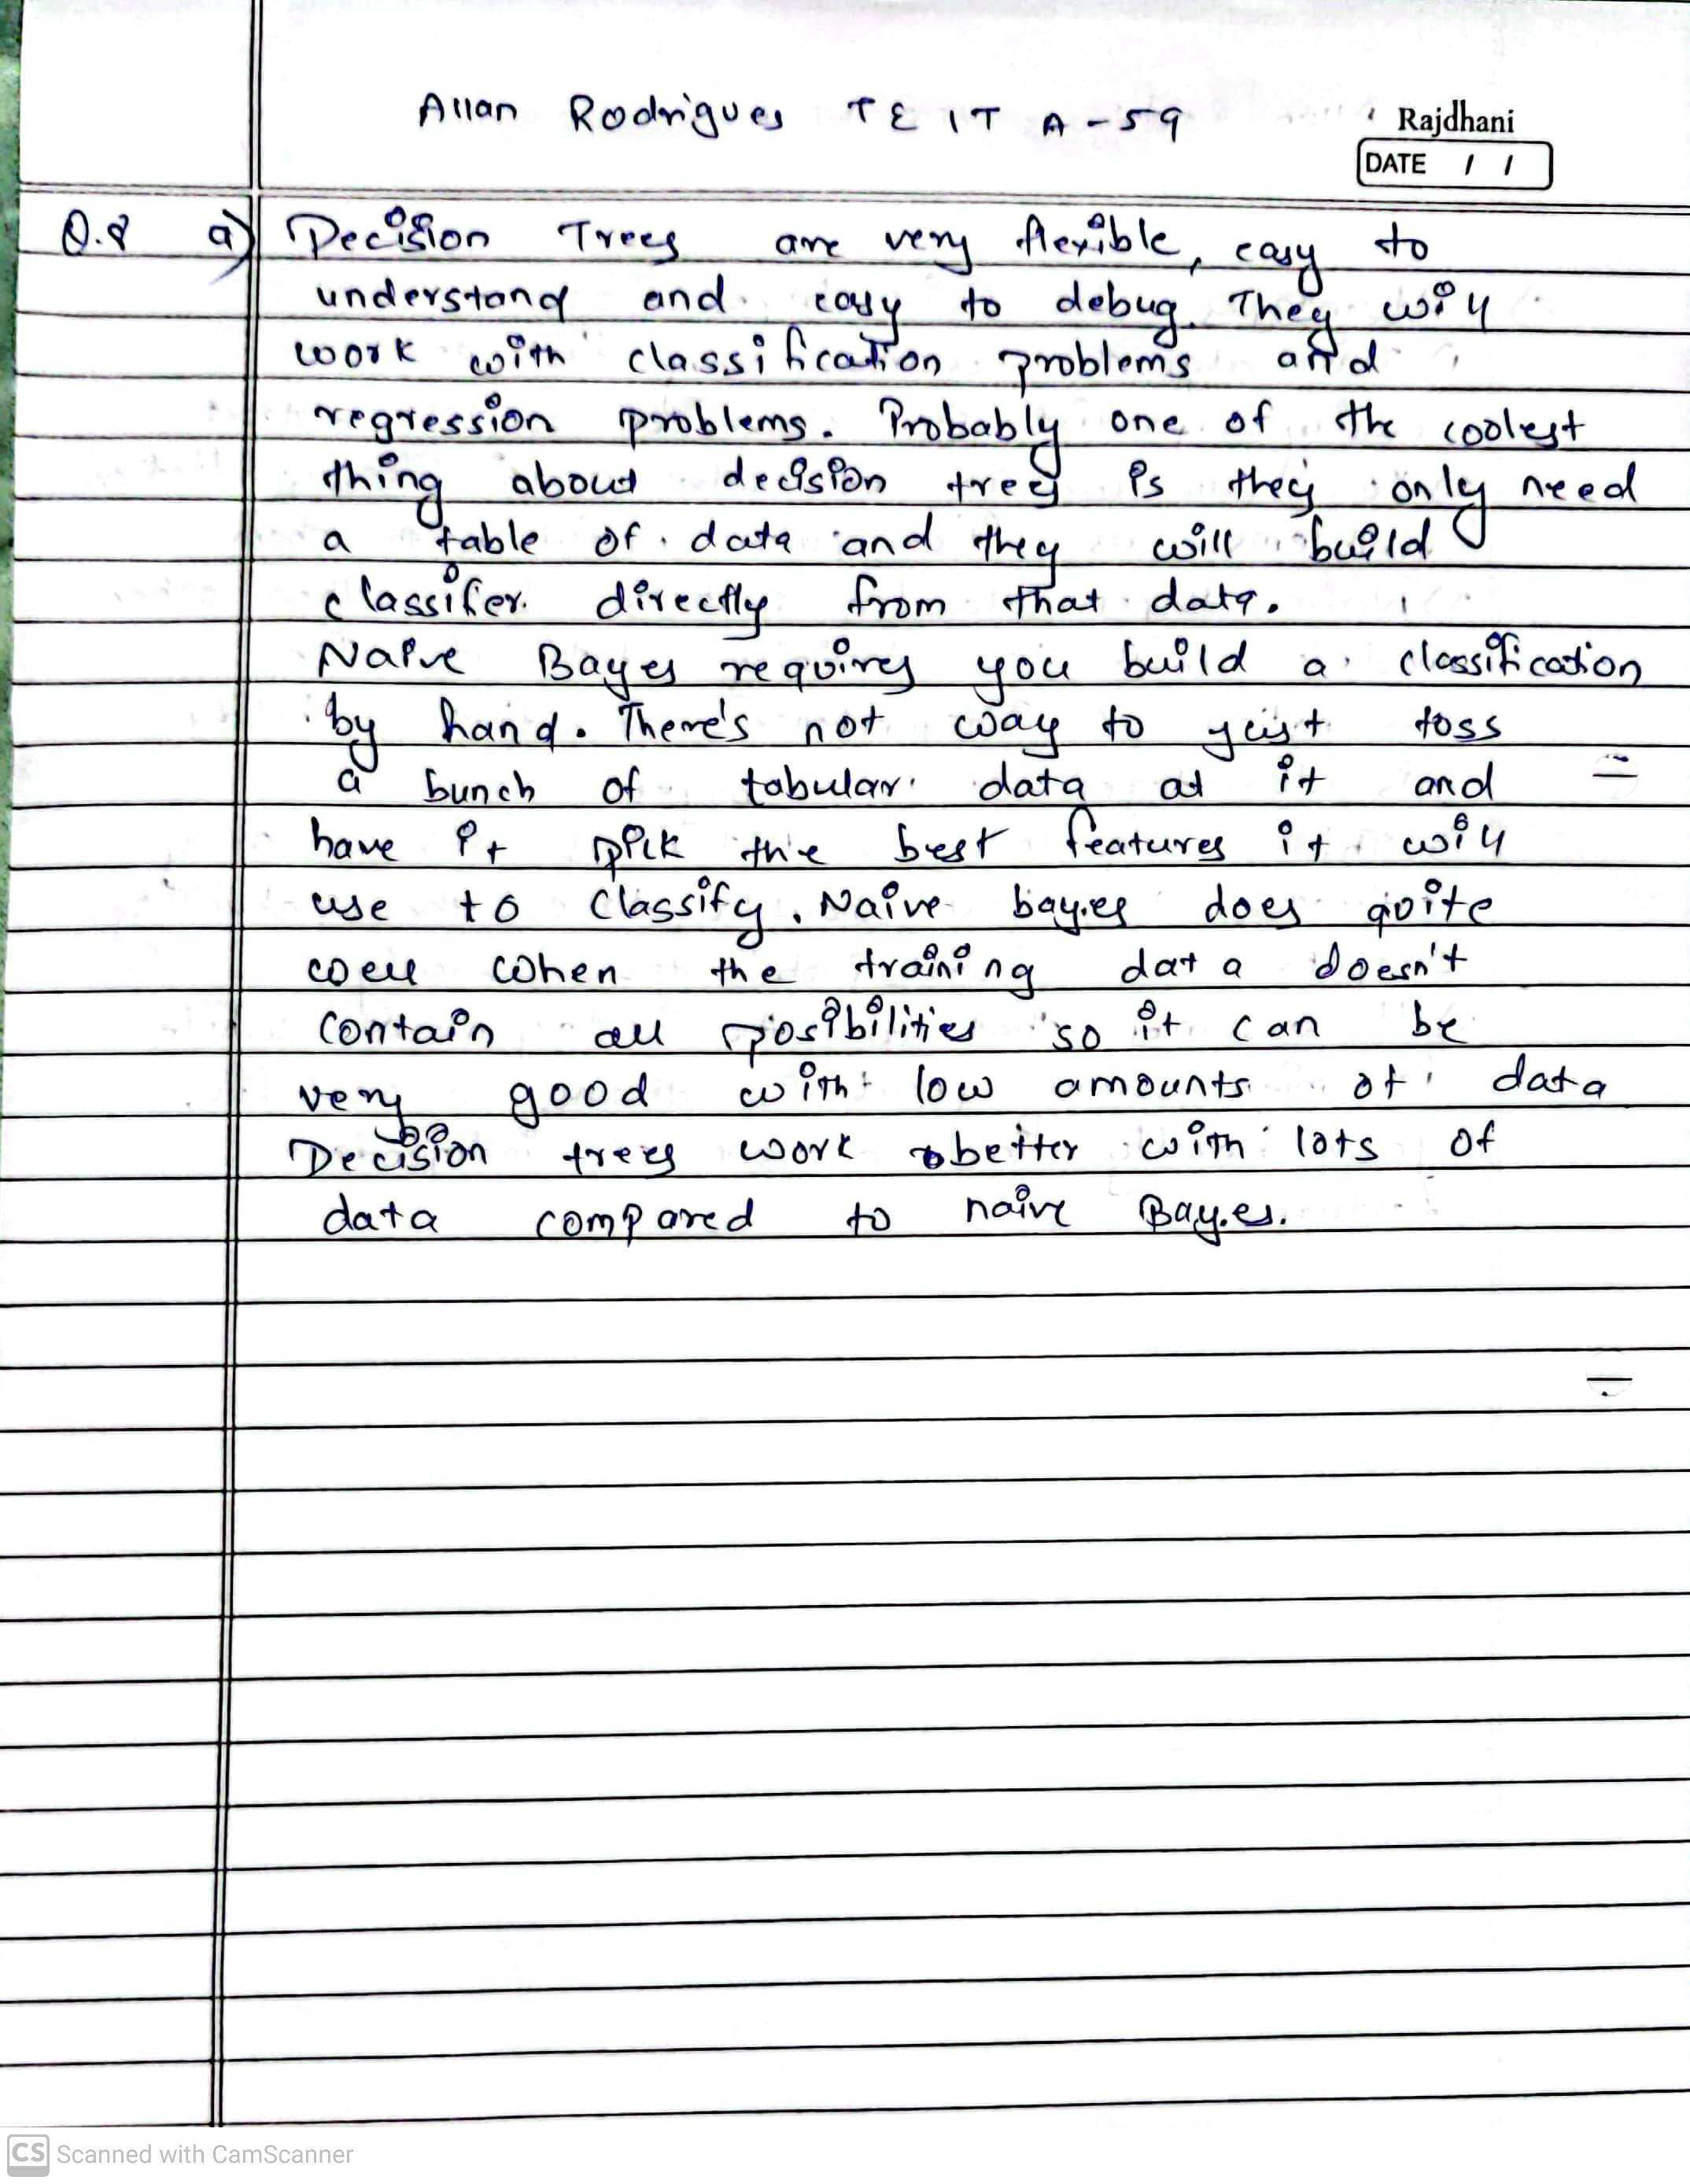 Allan Rodrigues TE IT A-59
Rajdhani
DATE / /
Q.8 a) Decision Trees are very flexible, easy to
understand and easy to debug. They will
work with classification problems and
regression problems. Probably one of the coolest
thing about decision trees is they only need
a table of data and they will build
classifer directly from that data.
Naive Bayes requires you build a classification
by hand. There's not way to just toss
a bunch of tabular data at it and
have it pick the best features it will
use to classify. Naive bayes does quite
well when the training data doesn't
contain all posibilities so it can be
very good with low amounts of data
Decision trees work better with lots of
data compared to naive Bayes.
CS Scanned with CamScanner